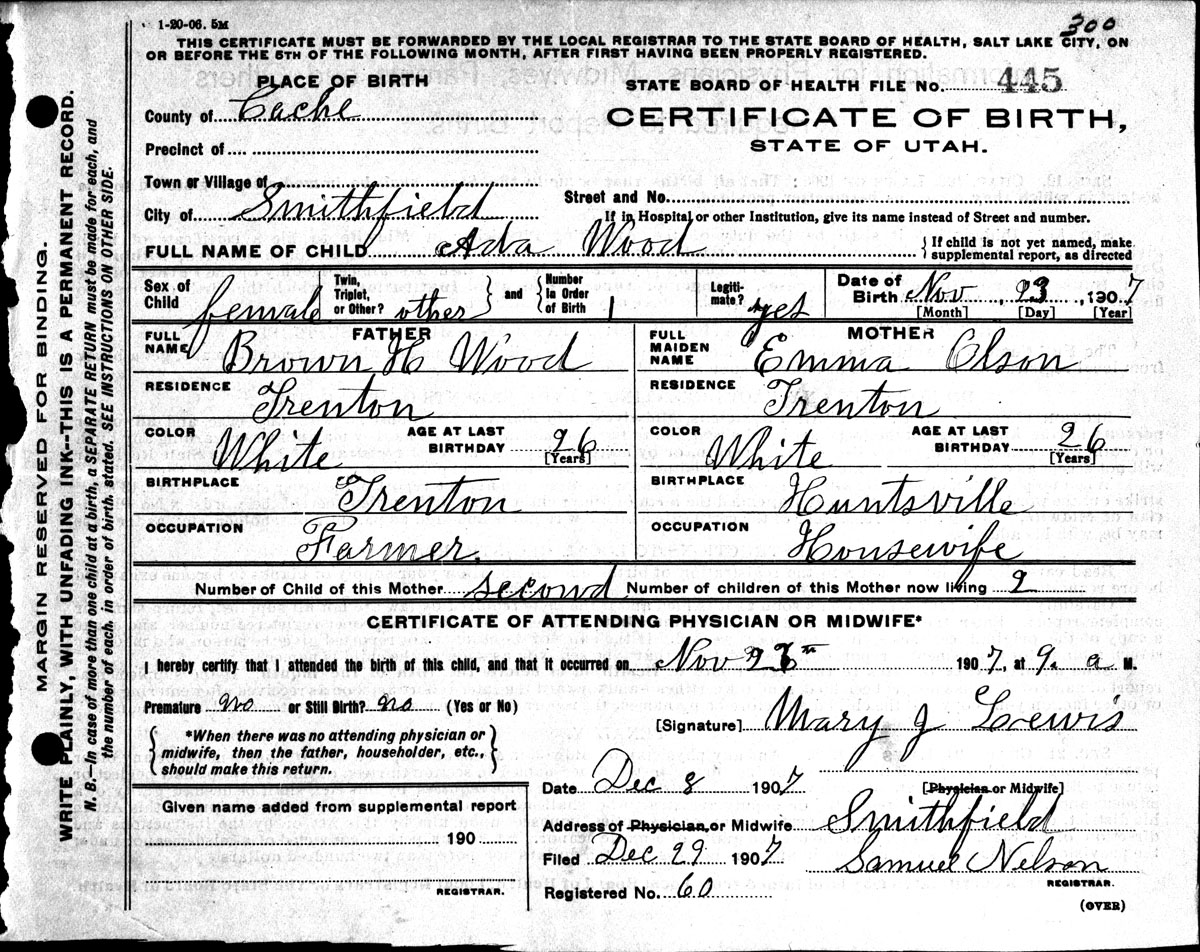 1-20-06. 5M
300
THIS CERTIFICATE MUST BE FORWARDED BY THE LOCAL REGISTRAR TO THE STATE BOARD OF HEALTH, SALT LAKE CITY, ON
OR BEFORE THE 5TH OF THE FOLLOWING MONTH, AFTER FIRST HAVING BEEN PROPERLY REGISTERED.
PLACE OF BIRTH
STATE BOARD OF HEALTH FILE No. 445
County of Cache
CERTIFICATE OF BIRTH,
STATE OF UTAH.
Precinct of
Town or Village of
Street and No.
City of Smithfield
If in Hospital or other Institution, give its name instead of Street and number.
FULL NAME OF CHILD Ada Wood
{ If child is not yet named, make
supplemental report, as directed
Sex of Child female
Twin, Triplet, or Other? other
and { Number in Order of Birth 1
Legitimate? yes
Date of Birth Nov, 23, 1907
[Month] [Day] [Year]
FATHER
MOTHER
FULL NAME Brown H Wood
FULL MAIDEN NAME Emma Olson
RESIDENCE Trenton
RESIDENCE Trenton
COLOR White AGE AT LAST BIRTHDAY 26 [Years]
COLOR White AGE AT LAST BIRTHDAY 26 [Years]
BIRTHPLACE Trenton
BIRTHPLACE Huntsville
OCCUPATION Farmer.
OCCUPATION Housewife
Number of Child of this Mother second Number of children of this Mother now living 2
CERTIFICATE OF ATTENDING PHYSICIAN OR MIDWIFE*
I hereby certify that I attended the birth of this child, and that it occurred on Nov 1907, at 9. a M.
Premature no or Still Birth? no (Yes or No)
[Signature] Mary J Lewis
[Physician or Midwife]
{ *When there was no attending physician or
midwife, then the father, householder, etc.,
should make this return. }
Date Dec 8 1907
Given name added from supplemental report
190
REGISTRAR.
Address of Physician or Midwife Smithfield
Filed Dec 29 1907 Samuel Nelson
REGISTRAR.
Registered No. 60
(OVER)
MARGIN RESERVED FOR BINDING.
WRITE PLAINLY, WITH UNFADING INK--THIS IS A PERMANENT RECORD.
N. B.—In case of more than one child at a birth, a SEPARATE RETURN must be made for each, and
the number of each, in order of birth, stated. SEE INSTRUCTIONS ON OTHER SIDE.